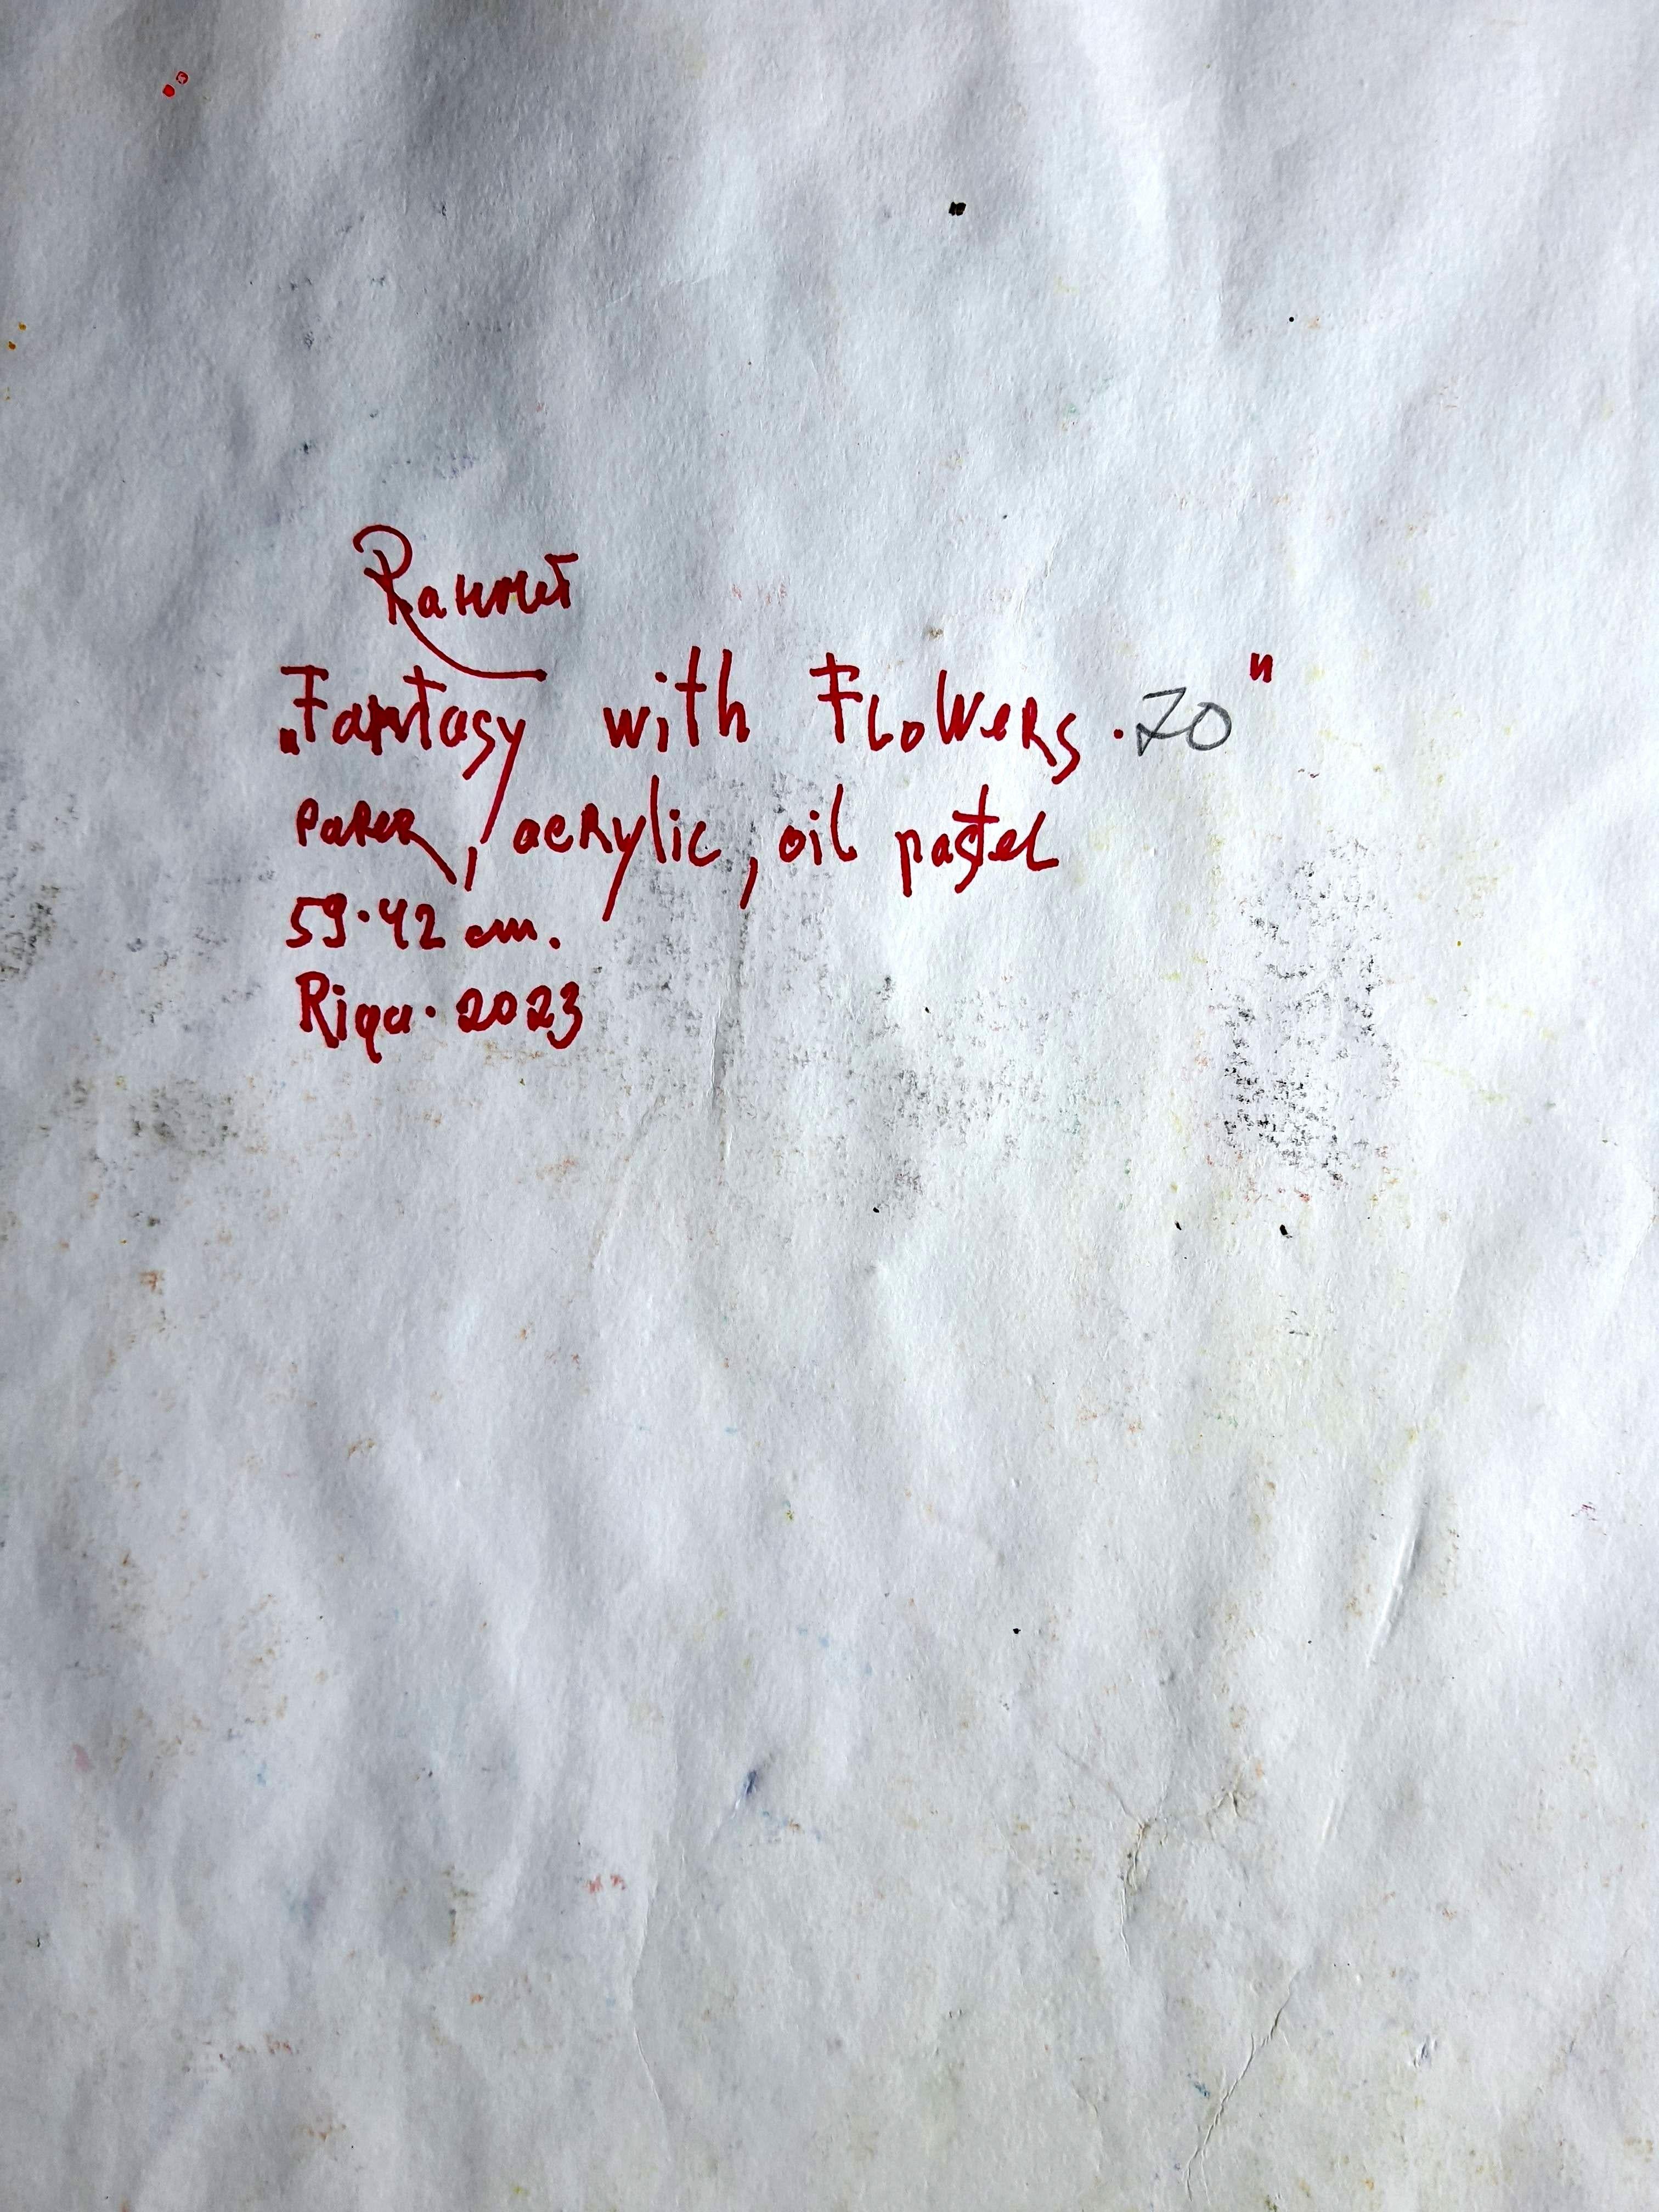 „Fantasy with Flowers.70"
paper, acrylic, oil pastel
59·42 cm.
Riga·2023